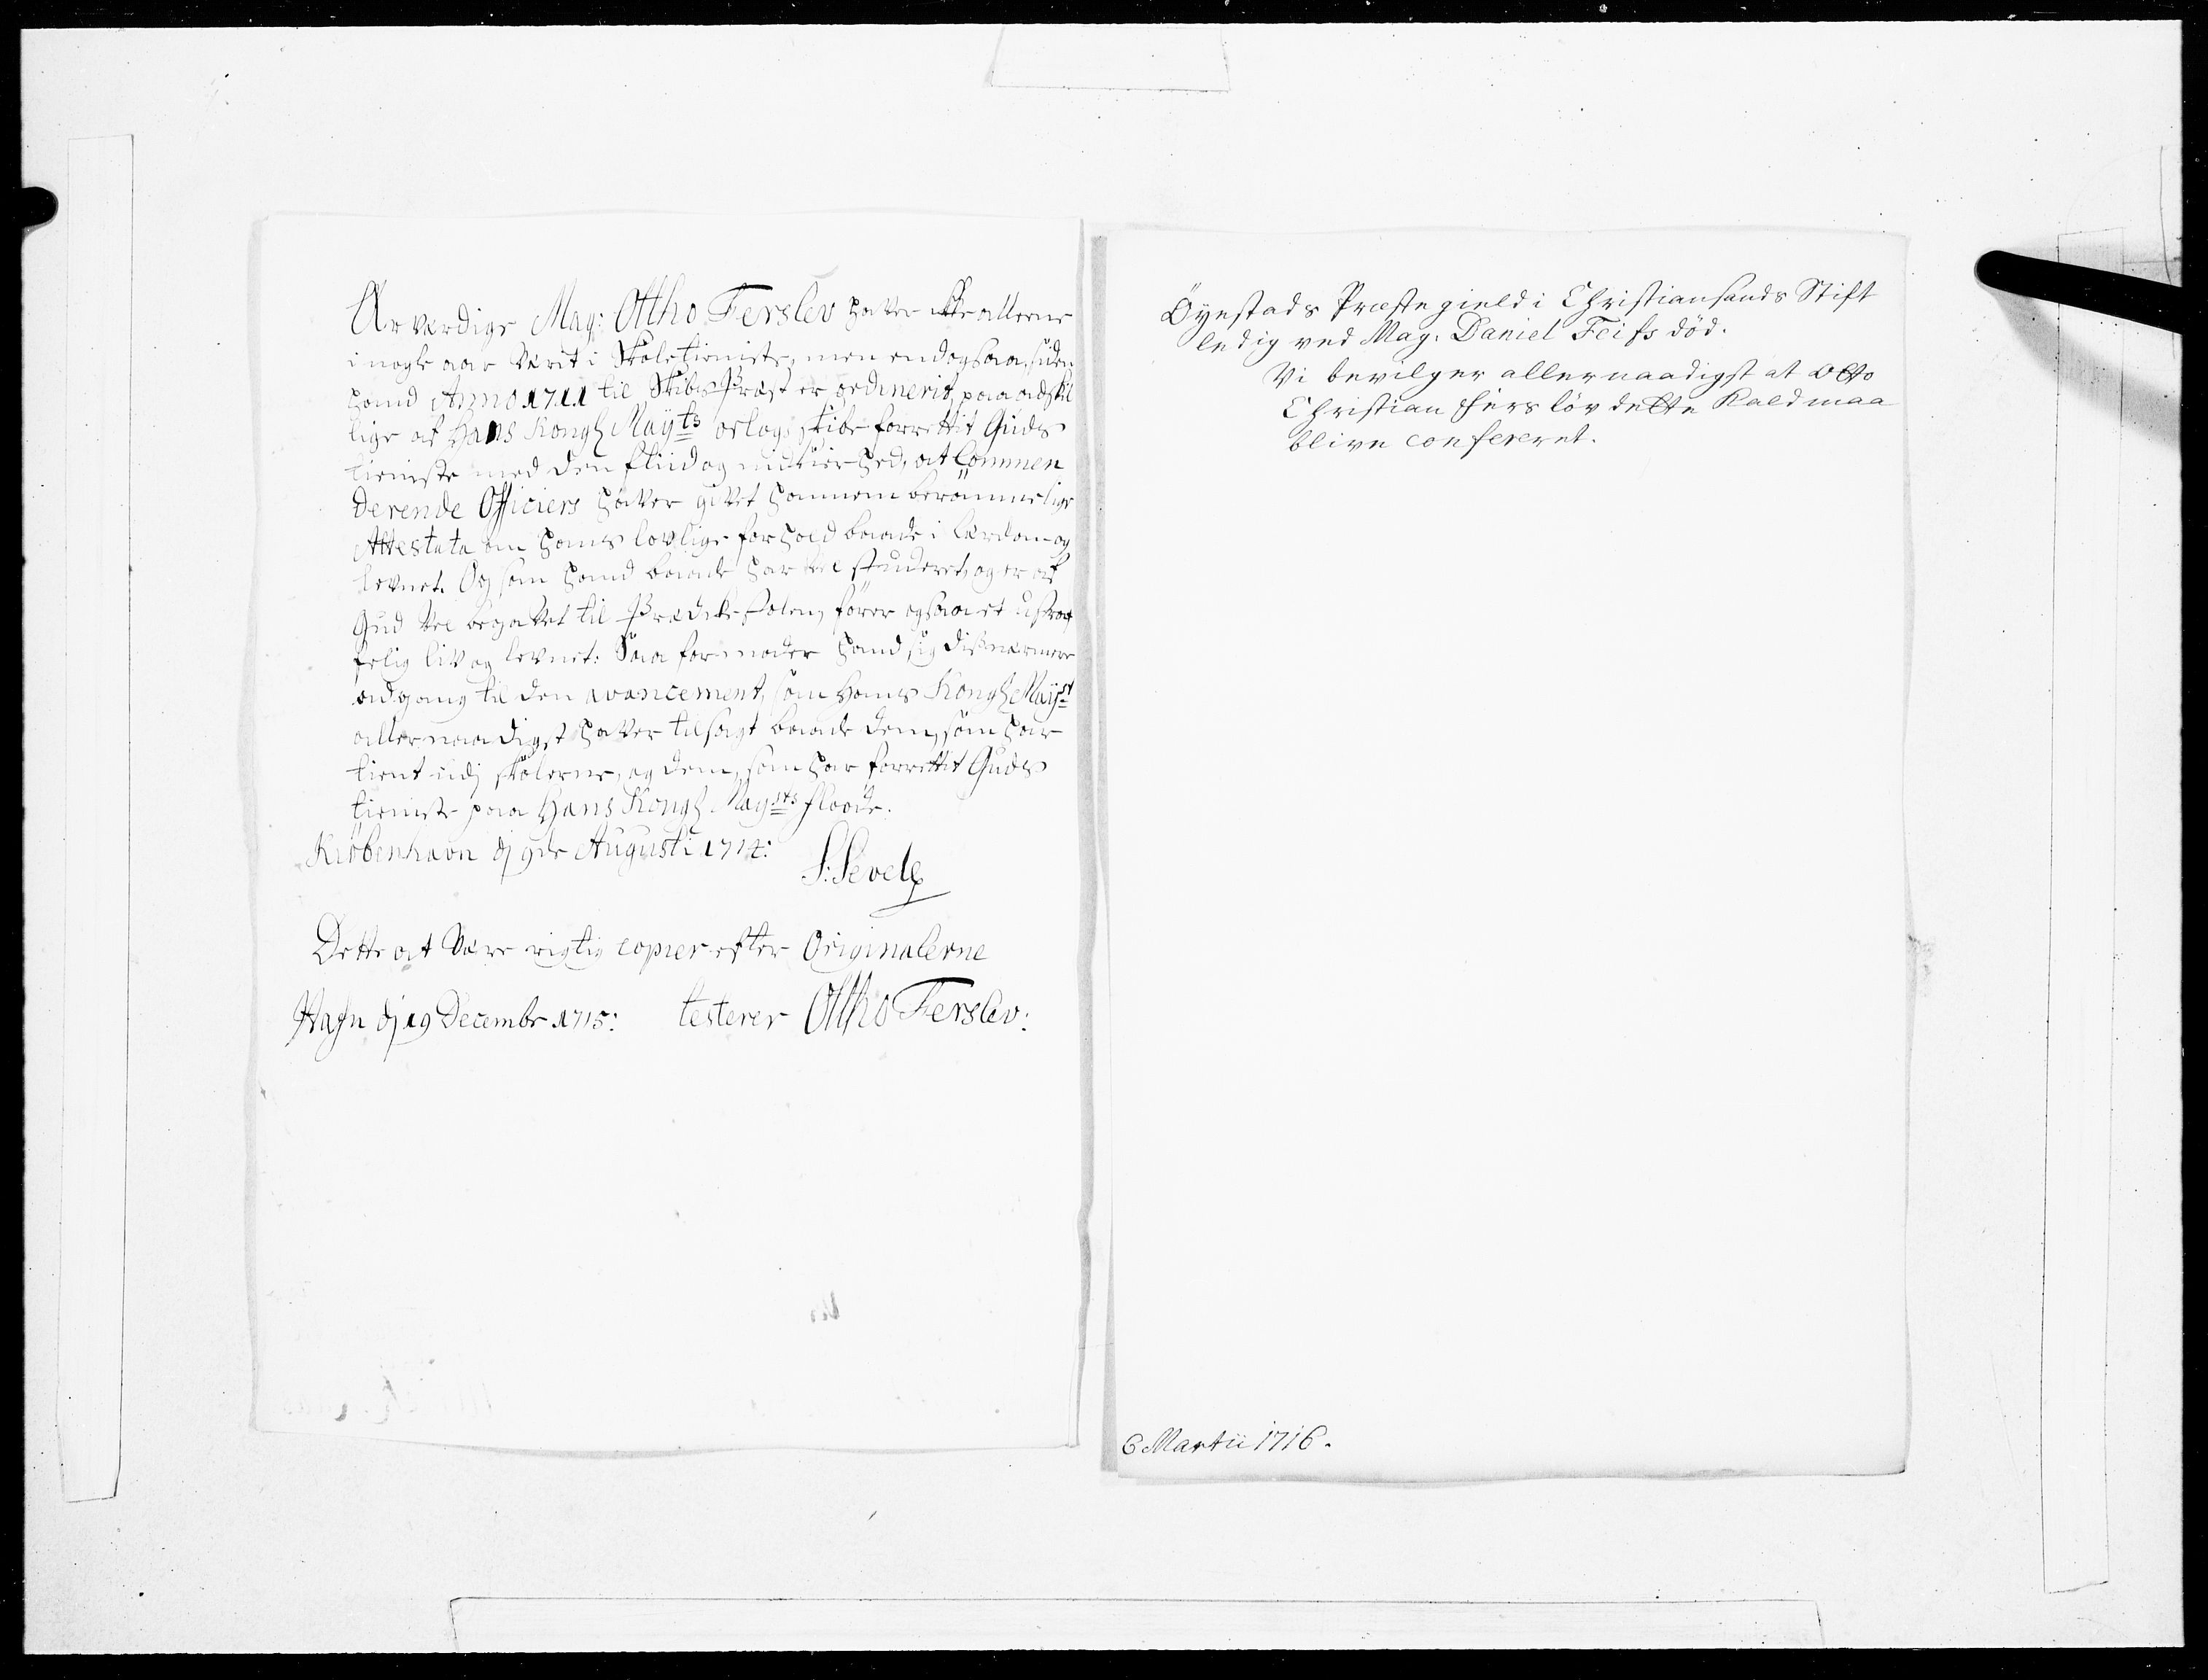 Ær værdige Mag: Ottho Ferslev haver ikke alleene
i nogle aar værit i Skoletieniste, men endogsaa, siden
hand Anno 1711 til Skibs Præst er ordinerit, paa adskil
lige af Hans Kongl Mayts orlogs skibe forrettit Guds
tieniste med den fliid og nidkierhed, at Commen
derende Officiers haver givet hannem berömmelige
Attestata om hans lovlige forhold baade i lærdom og
levnet. Og som hand baade har vel studeret, og er af
Gud vel begavet til Prædikestolen, förer ogsaa et ustraf
felig liv og levnet: Saa formoder hand sig dis nærmere
adgang til den avancement, som Hans Kongl Mayst
allernaadigst haver tilsagt baade dem, som har
tient udj skolerne, og dem, som har forrettit Guds
tieniste paa Hans Kongl Maysts flaade.
Kiöbenhavn dj 9de Augusti 1714:
S: Sevel
Dette at være rigtig copier efter Originalerne
Hafn dj 19 Decembr 1715: testerer Ottho Ferslev:
Öyestads Præstegield i Christiansands Stift
ledig ved Mag. Daniel Feifs död.
Vi bevilger allernaadigst at Otto
Christian Fersløv dette Kald maa
blive confereret.
6 Martii 1716.